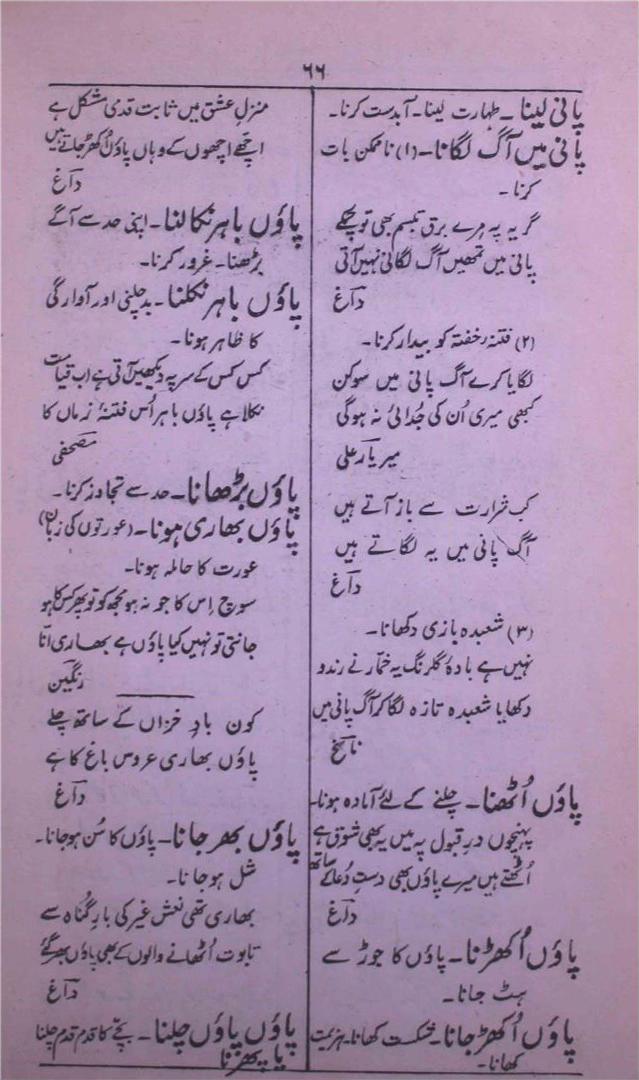 ۶۶
پانی لینا۔ طہارت لینا۔ آبدست کرنا۔
پانی میں آگ لگانا۔ (۱) ناممکن بات
کرنا۔
گریہ پہ مرے برق تبسم بھی تو چمکے
پانی میں تمھیں آگ لگانی نہیں آتی
داغ
(۲) فتنہ خفتہ کو بیدار کرنا۔
لگایا کرے آگ پانی میں سوکن
کبھی میری اُن کی جُدائی نہ ہوگی
میر یار علی
کب شرارت سے باز آتے ہیں
آگ پانی میں یہ لگاتے ہیں
داغ
(۳) شعبدہ بازی دکھانا۔
نہیں ہے بادۂ گلرنگ یہ خمّار نے رندو
دکھایا شعبدہ تازہ لگا کر آگ پانی میں
ناسخ
پاؤں اُٹھنا۔ چلنے کے لئے آمادہ ہونا۔
پہنچوں درِ قبول پہ میں یہ بھی شوق ہے
اُٹھتے ہیں میرے پاؤں بھی دستِ دُعا کے ساتھ
داغ
پاؤں اُکھڑنا۔ پاؤں کا جوڑ سے
ہٹ جانا۔
پاؤں اُکھڑ جانا۔ شکست کھانا۔ ہزیمت
کھانا۔
منزلِ عشق میں ثابت قدمی مشکل ہے
اچھے اچھوں کے وہاں پاؤں اُکھڑ جاتے ہیں
داغ
پاؤں باہر نکالنا۔ اپنی حد سے آگے
بڑھنا۔ غرور کرنا۔
پاؤں باہر نکلنا۔ بدچلنی اور آوارگی
کا ظاہر ہونا۔
کس کس کے سر پہ دیکھیں آتی ہے اب قیامت
نکلا ہے پاؤں باہر اُس فتنۂ زماں کا
مصحفی
پاؤں بڑھانا۔ حد سے تجاوز کرنا۔
پاؤں بھاری ہونا۔ (عورتوں کی زبان)
عورت کا حاملہ ہونا۔
سوچ اِس کا جو نہ ہو مجھ کو تو پھر کس کا ہو
جانتی تو نہیں کیا پاؤں ہے بھاری انّا
رنگین
کون بادِ خزاں کے ساتھ چلے
پاؤں بھاری عروس باغ کا ہے
داغ
پاؤں بھر جانا۔ پاؤں کا سُن ہو جانا۔
شل ہو جانا۔
بھاری تھی نعش غیر کی بارِ گُناہ سے
تابوت اُٹھانے والوں کے بھی پاؤں بھر گئے
داغ
پاؤں پاؤں چلنا۔ بچّے کا قدم قدم چلنا
یا پھرنا